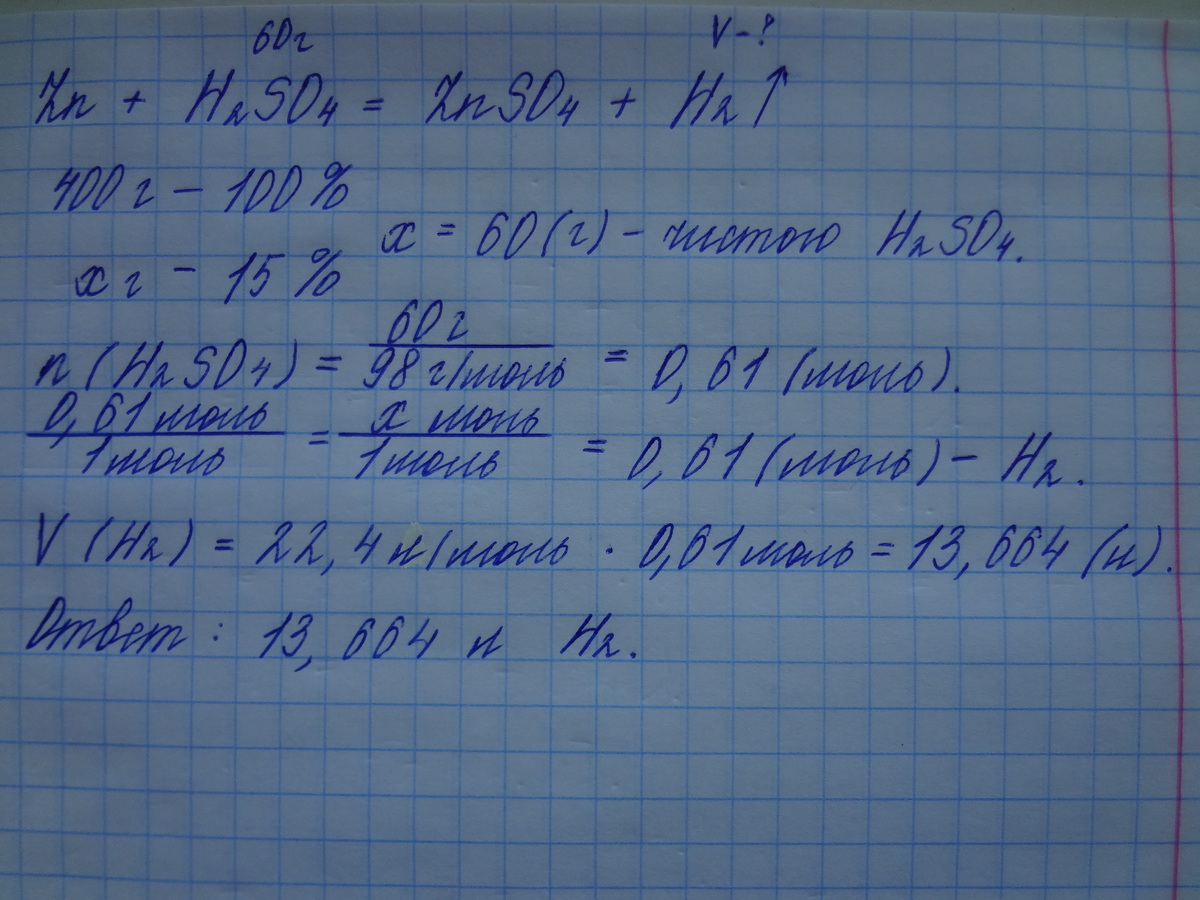 60г V-?
Zn + H₂SO₄ = ZnSO₄ + H₂↑
400 г – 100 %
x = 60 (г) – чистого H₂SO₄.
x г – 15 %
n (H₂SO₄) = 60 г / 98 г/моль = 0,61 (моль).
0,61 моль / 1 моль = x моль / 1 моль = 0,61 (моль) – H₂.
V (H₂) = 22,4 л/моль · 0,61 моль = 13,664 (л).
Ответ : 13,664 л H₂.